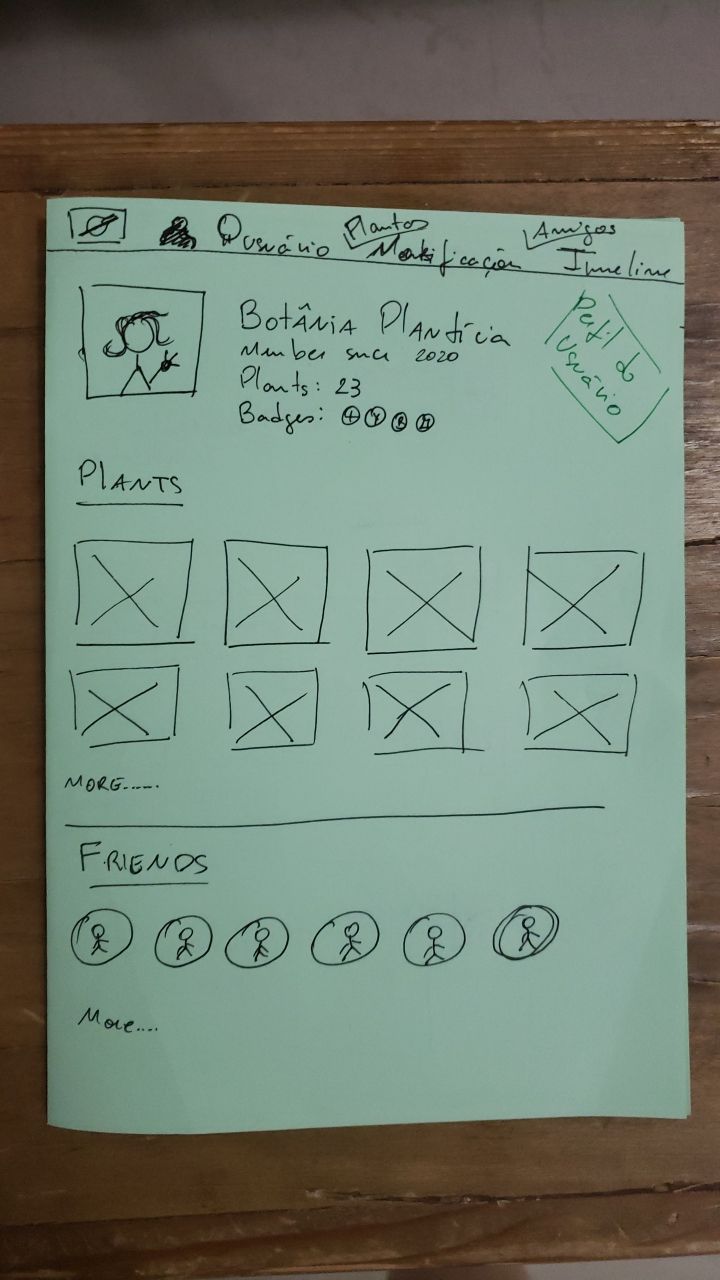 Plantas Amigos
Usuário Notificação Timeline
BOTÂNIA PLANTÍCIA
Member since 2020
Plants: 23
Badges:
Perfil do
Usuário
PLANTS
MORE......
FRIENDS
More....